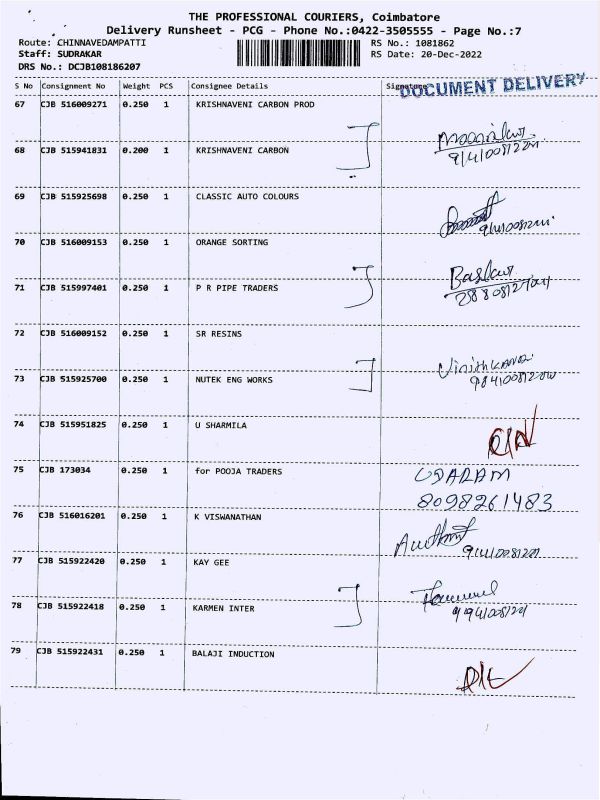 THE PROFESSIONAL COURIERS, Coimbatore
Delivery Runsheet - PCG - Phone No.:0422-3505555 - Page No.:7
Route: CHINNAVEDAMPATTI RS No.: 1081862
Staff: SUDRAKAR RS Date: 20-Dec-2022
DRS No.: DCJB108186207
S No Consignment No Weight PCS Consignee Details Signature
DOCUMENT DELIVERY
67 CJB 516009271 0.250 1 KRISHNAVENI CARBON PROD
68 CJB 515941831 0.200 1 KRISHNAVENI CARBON
69 CJB 515925698 0.250 1 CLASSIC AUTO COLOURS
70 CJB 516009153 0.250 1 ORANGE SORTING
71 CJB 515997401 0.250 1 P R PIPE TRADERS Baskar
72 CJB 516009152 0.250 1 SR RESINS
73 CJB 515925700 0.250 1 NUTEK ENG WORKS
74 CJB 515951825 0.250 1 U SHARMILA
75 CJB 173034 0.250 1 for POOJA TRADERS
8098261483
76 CJB 516016201 0.250 1 K VISWANATHAN
77 CJB 515922420 0.250 1 KAY GEE
78 CJB 515922418 0.250 1 KARMEN INTER
79 CJB 515922431 0.250 1 BALAJI INDUCTION